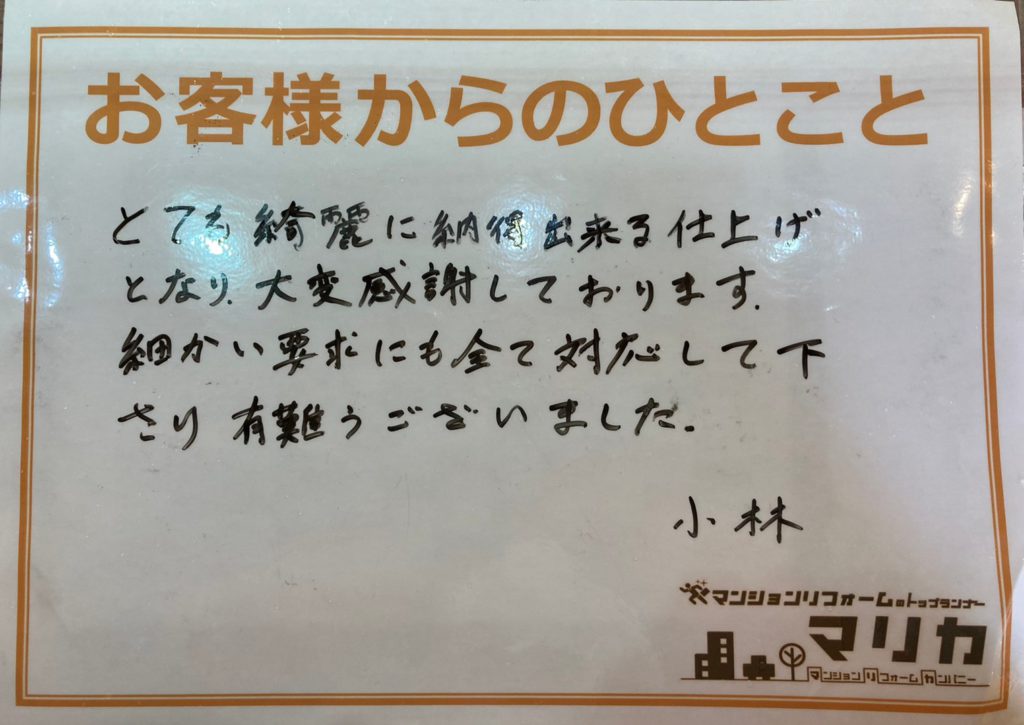 お客様からのひとこと
とても綺麗に納得出来る仕上げ
となり、大変感謝しております。
細かい要求にも全て対応して下
さり有難うございました。
小林
マンションリフォームのトップランナー
マリカ
マンションリフォームカンパニー